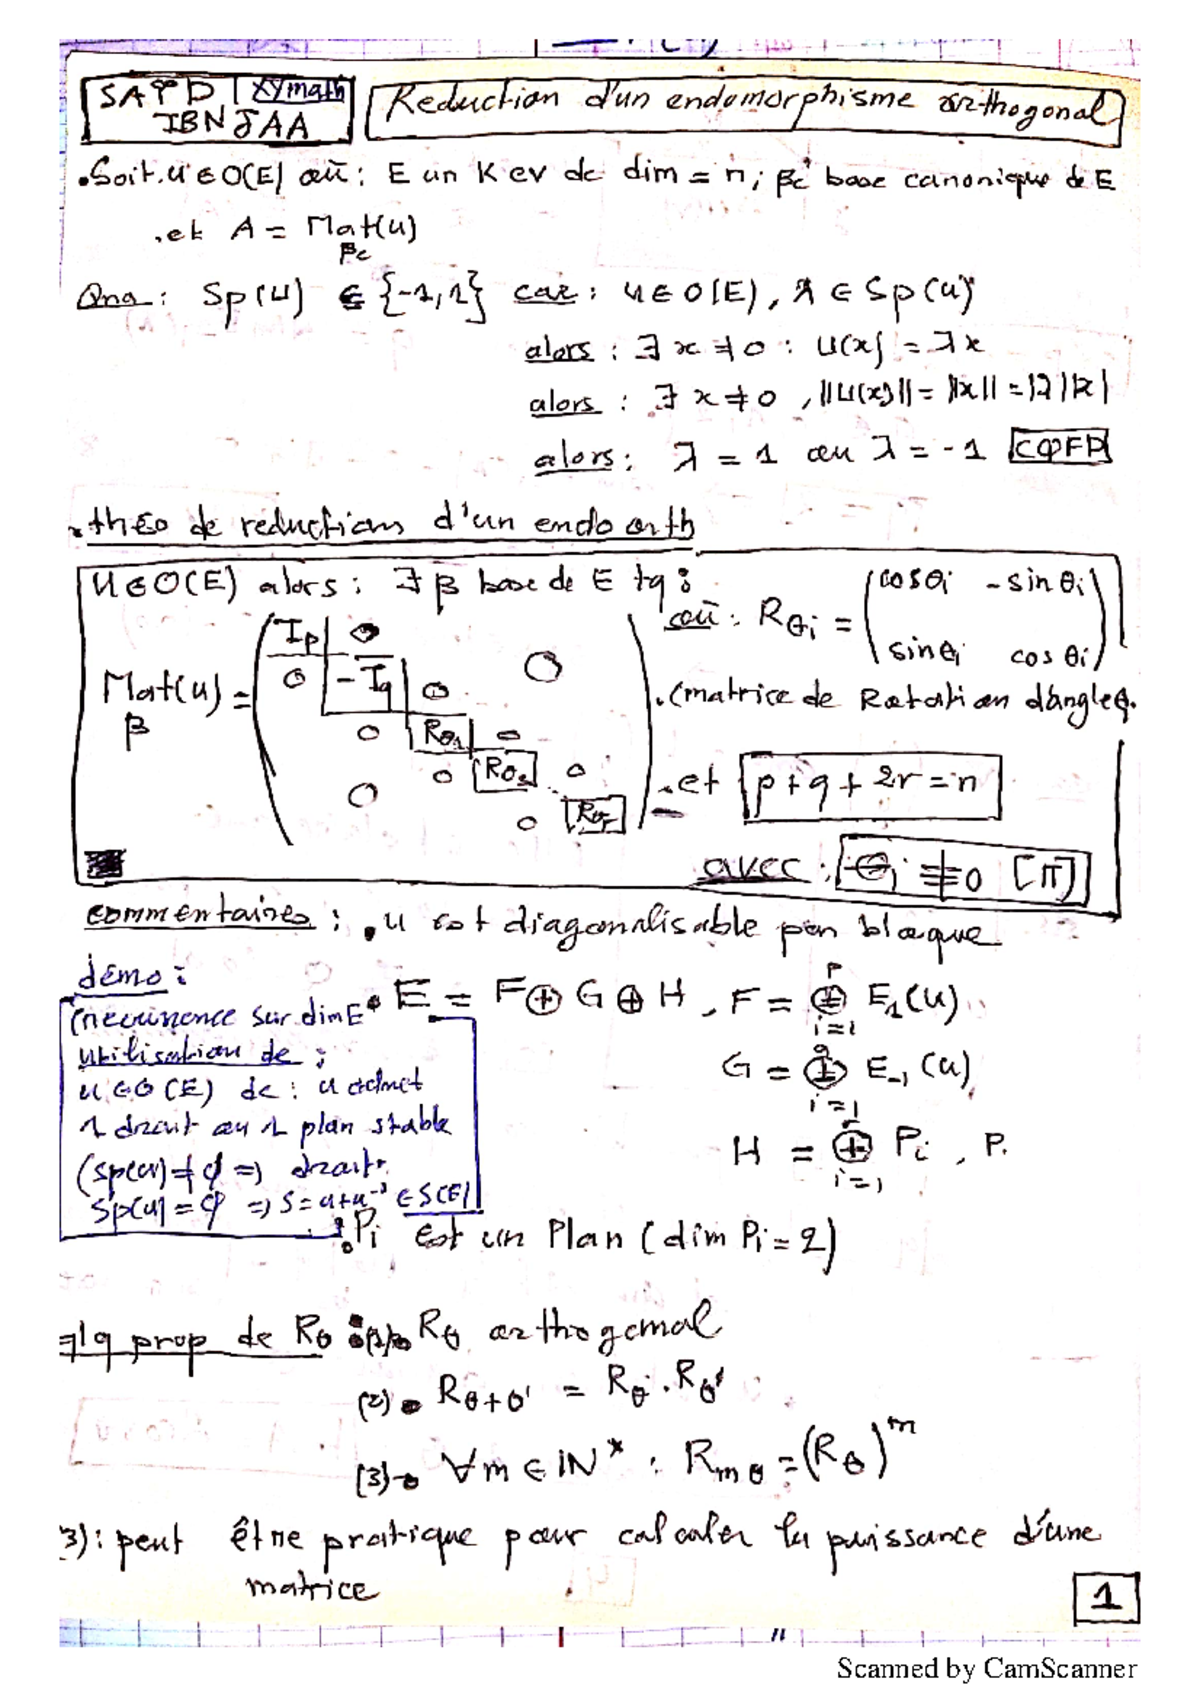 SAPD | xymath
IBN JAA
Reduction d'un endomorphisme orthogonal
.Soit. u ∈ O(E) où : E un K ev de dim = n ; βc base canonique de E
.et A = Mat(u)
βc
Ona : Sp(u) ⊆ {-1,1} car : u ∈ O(E), λ ∈ Sp(u)
alors : ∃ x ≠ 0 : u(x) = λx
alors : ∃ x ≠ 0 , ||u(x)|| = ||x|| = |λ| |x|
alors : λ = 1 ou λ = -1 CQFD
. théo de reduction d'un endo orth
u ∈ O(E) alors : ∃ β base de E tq :
où : Rθi = ( cosθi -sinθi
sinθi cosθi )
Mat(u) = ( Ip 0 0
β
0 -Iq 0
0 Rθ1 0
0 Rθ2 0
0 0 Rθr )
. (matrice de Rotation d'angle θi
. et p+q+2r=n
avec : θi ≢ 0 [π]
commentaires : . u est diagonalisable par bloque
démo :
(récurrence sur dimE
utilisation de :
u ∈ O(E) dc : u admet
1 droit ou 1 plan stable
(sp(u) ≠ ∅ ⇒ droit.
Sp(u) = ∅ ⇒ S = u+u⁻¹ ∈ S(E)
• E = F ⊕ G ⊕ H , F = ⊕ᵢ₌₁ᵖ E₁(u)
G = ⊕ᵢ₌₁^q E₋₁(u)
H = ⊕ᵢ₌₁^r Pi , P.
: Pi Est un Plan (dim Pi = 2)
qlq prop de Rθ : (1) Rθ orthogonal
(2) • Rθ+θ' = Rθ . Rθ'
(3) • ∀m ∈ IN* : Rmθ = (Rθ)ᵐ
3) : peut être pratique pour calculer la puissance d'une
matrice
1
Scanned by CamScanner